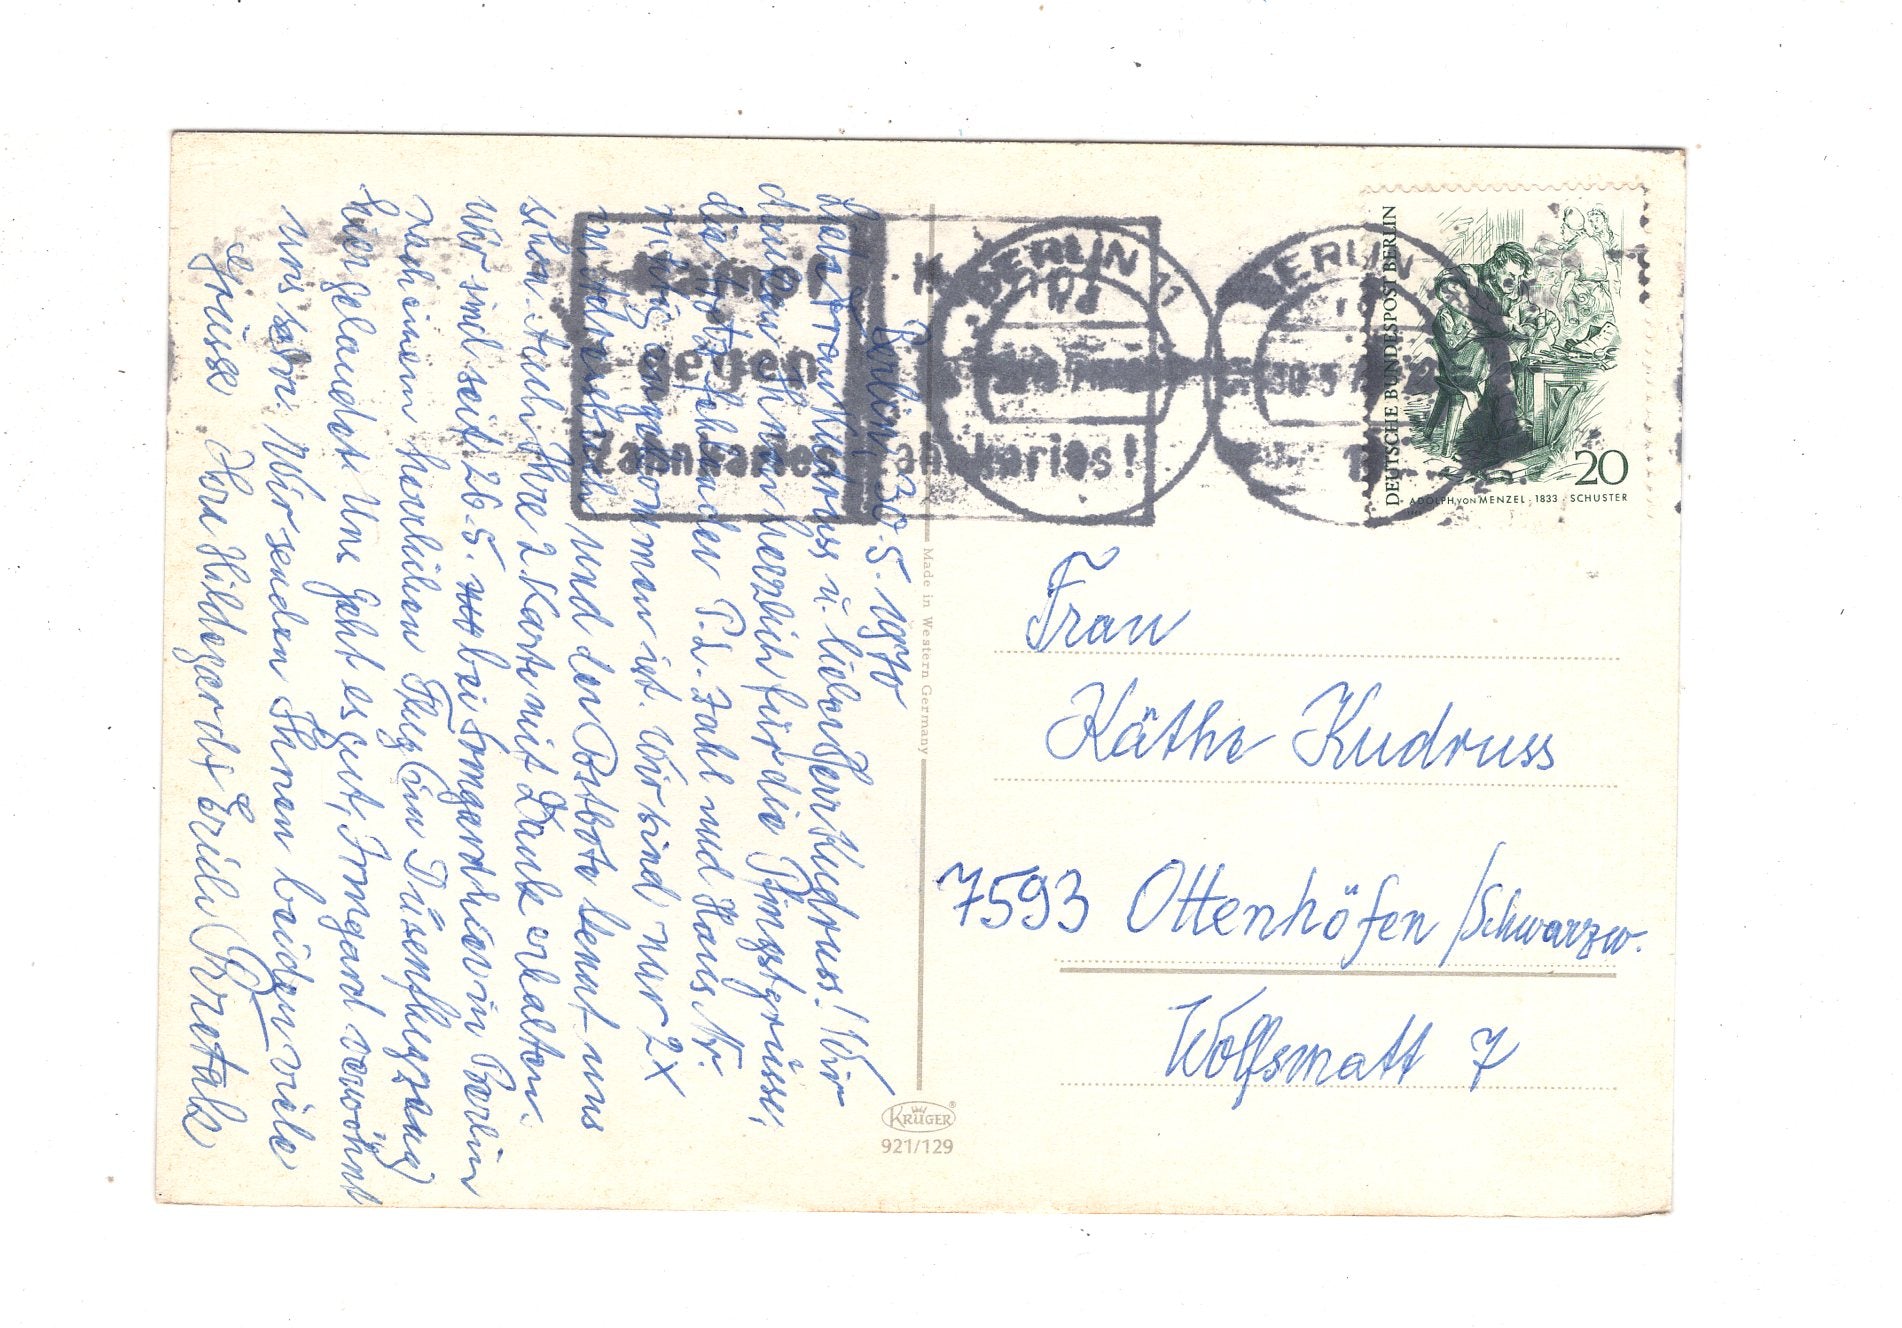 Berlin, 30.5.1970
Liebe Frau Kudruss u. lieber Herr Kudruss! Wir
danken Ihnen herzlich für die Pfingstgrüsse,
die trotz fehlender P.L. Zahl und Haus Nr.
richtig angekommen ist. Wir sind nur 2x
und der Postbote kennt uns
schon. Auch Ihre 2. Karte mit Dank erhalten.
Wir sind seit 26.5. bei Irmgard hier in Berlin
nach einem herrlichen Flug (im Düsenflugzeug)
hier gelandet. Uns geht es gut, Irmgard verwöhnt
uns sehr. Wir senden Ihnen beiden viele
Grüsse Ihre Hildegard u. Erich Pretak
Made in Western Germany
KRÜGER®
921/129
Kampf
gegen
Zahnkaries!
BERLIN 11
BERLIN
30.5.
DEUTSCHE BUNDESPOST BERLIN
20
ADOLPH VON MENZEL · 1833 · SCHUSTER
Frau
Käthe Kudruss
7593 Ottenhöfen /Schwarzw.
Wolfsmatt 7